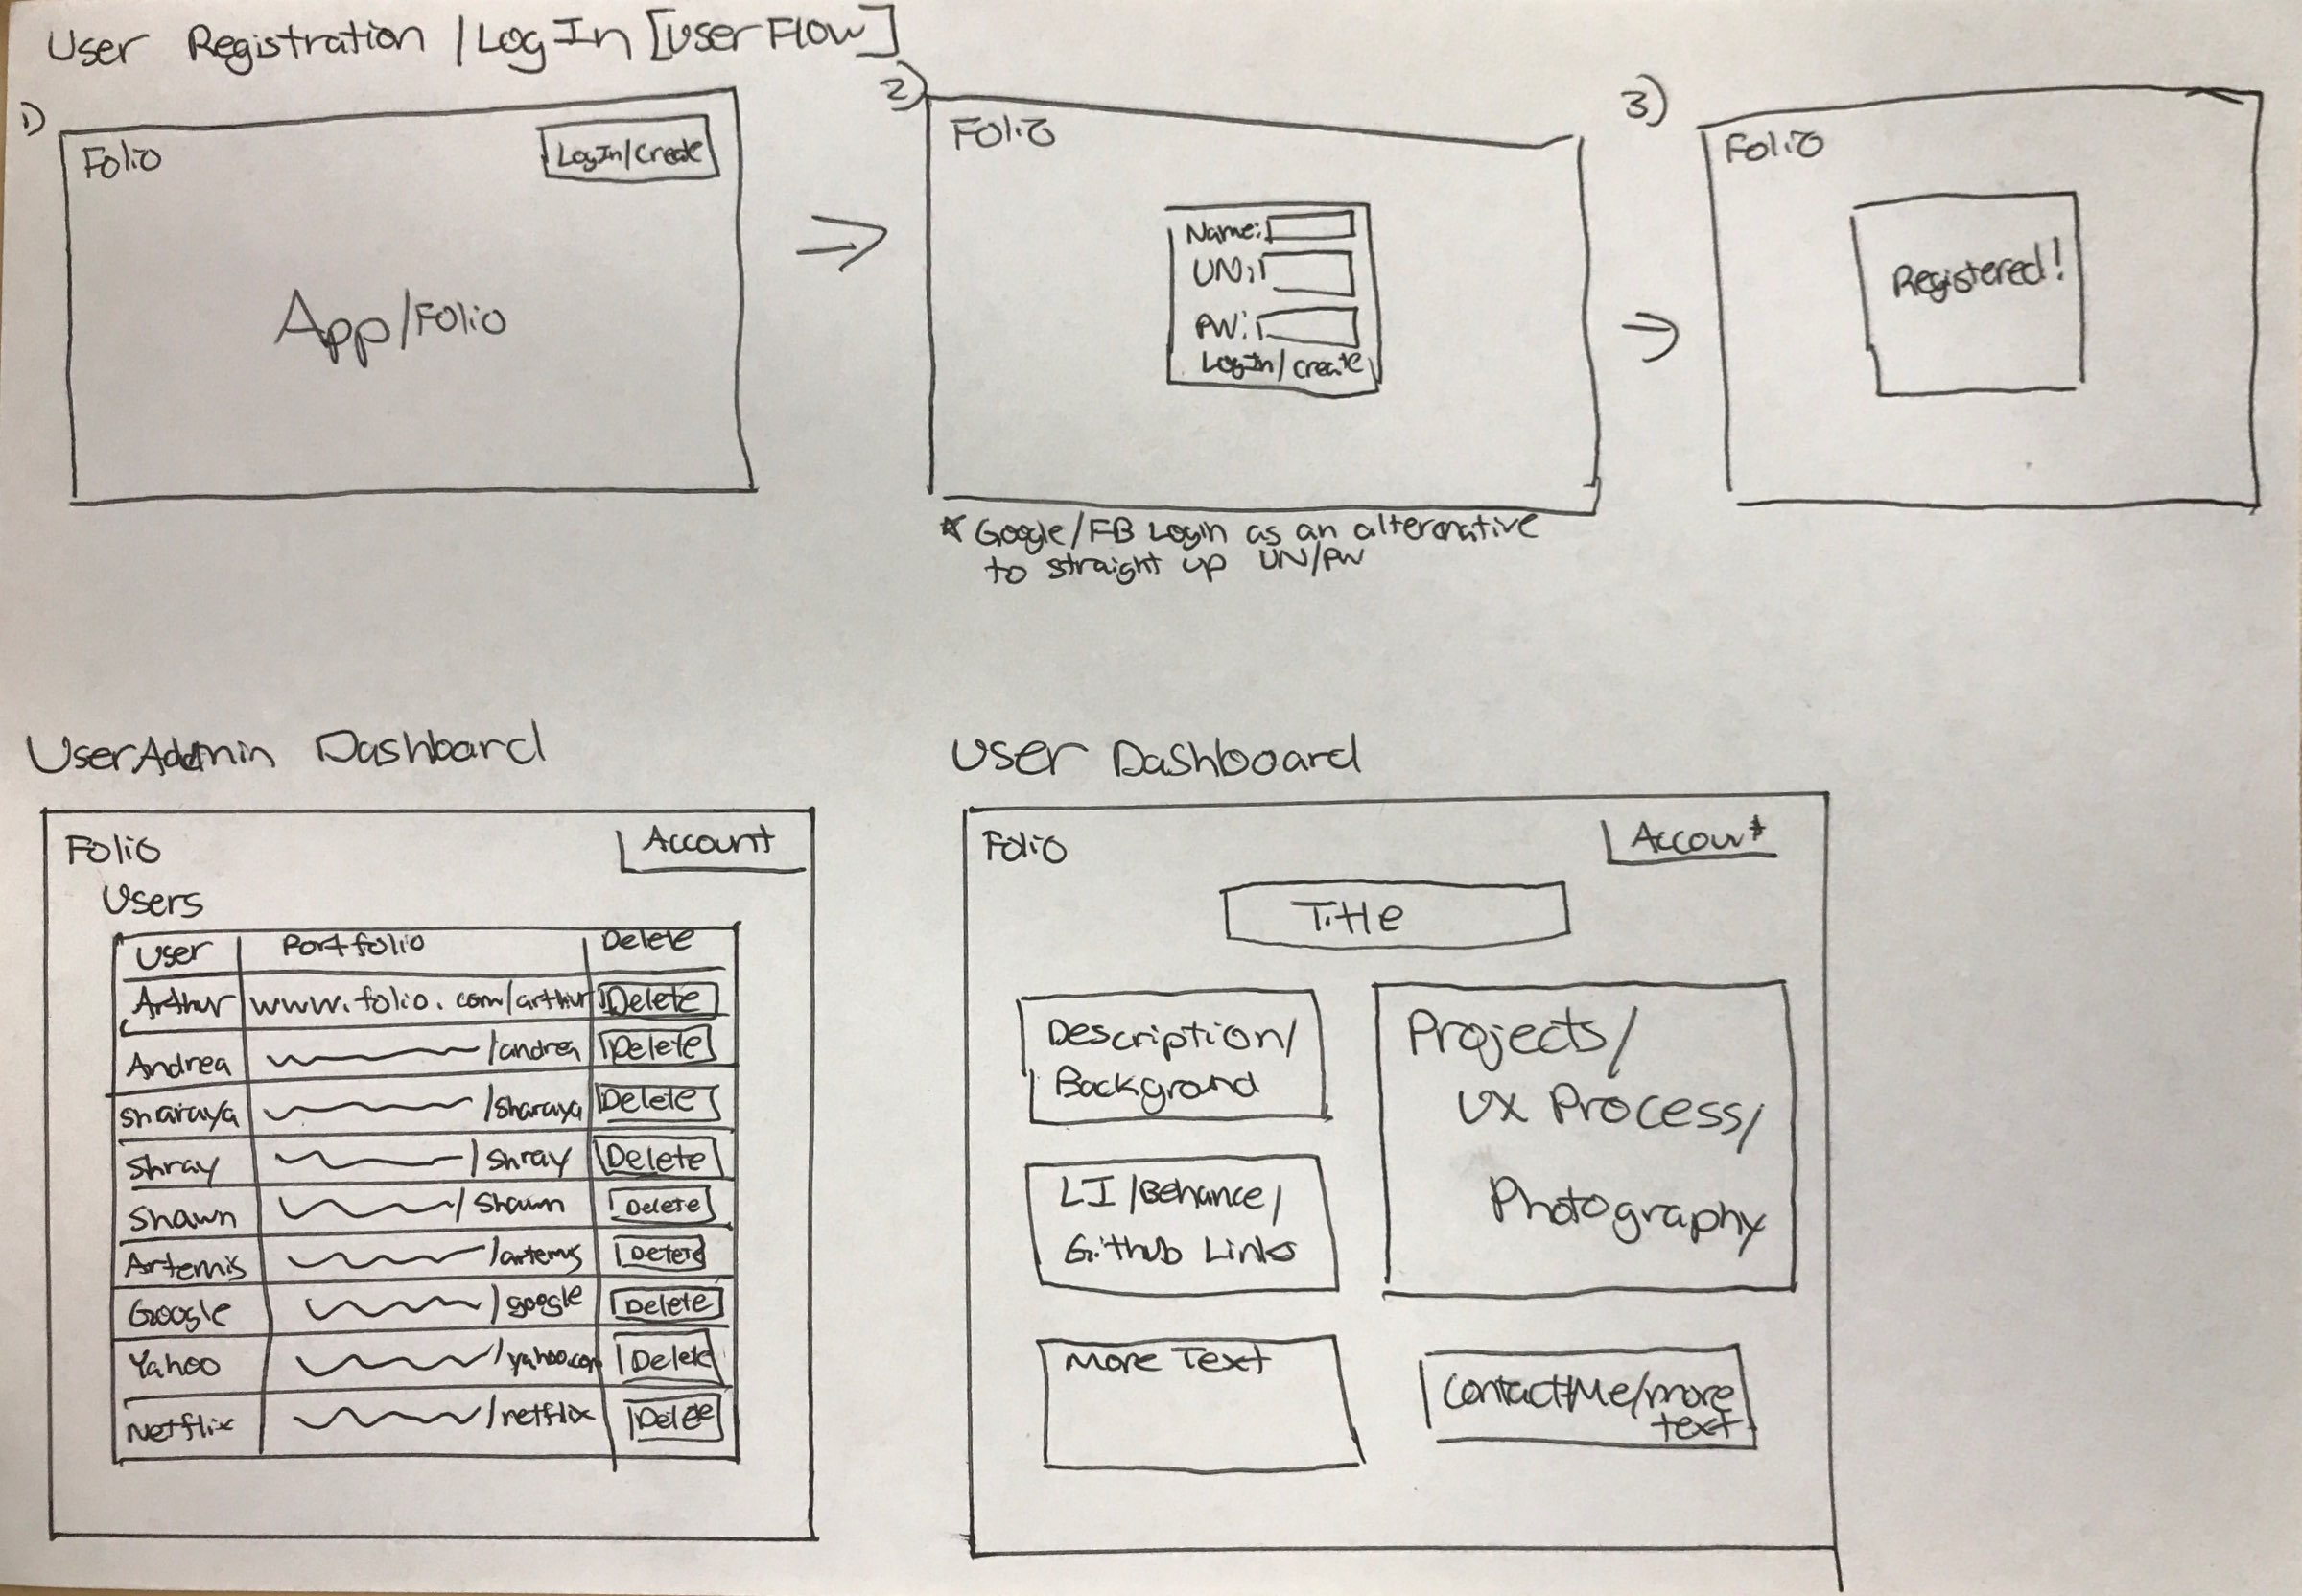 User Registration / Log In [User Flow]
1)
Folio
LogIn/Create
App/Folio
2)
Folio
Name:
UN:
PW:
LogIn/Create
* Google/FB Login as an alternative
to straight up UN/PW
3)
Folio
Registered!
User Addmin Dashboard
Folio
Account
Users
User Portfolio Delete
Arthur www.folio.com/arthur Delete
Andrea /andrea Delete
sharaya /sharaya Delete
Shray /shray Delete
Shawn /Shawn Delete
Artemis /artemis Delete
Google /google Delete
Yahoo /yahoo.com Delete
Netflix /netflix Delete
User Dashboard
Folio
Account
Title
Description/
Background
Projects/
UX Process/
Photography
LI/Behance/
Github Links
More Text
Contact Me/more
text